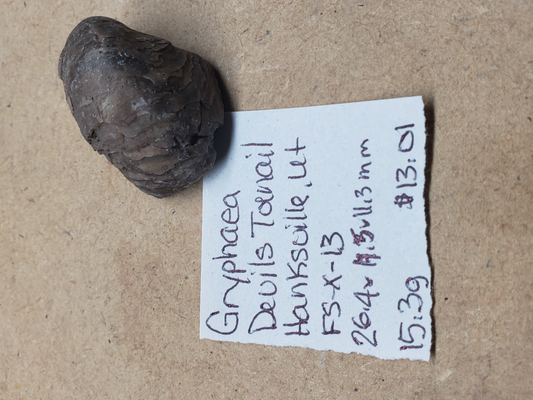 Gryphaea
Devils Toenail
Hanksville, Ut
FS-X-13
26.4x 19.5x11.3mm
15.3g $13.01